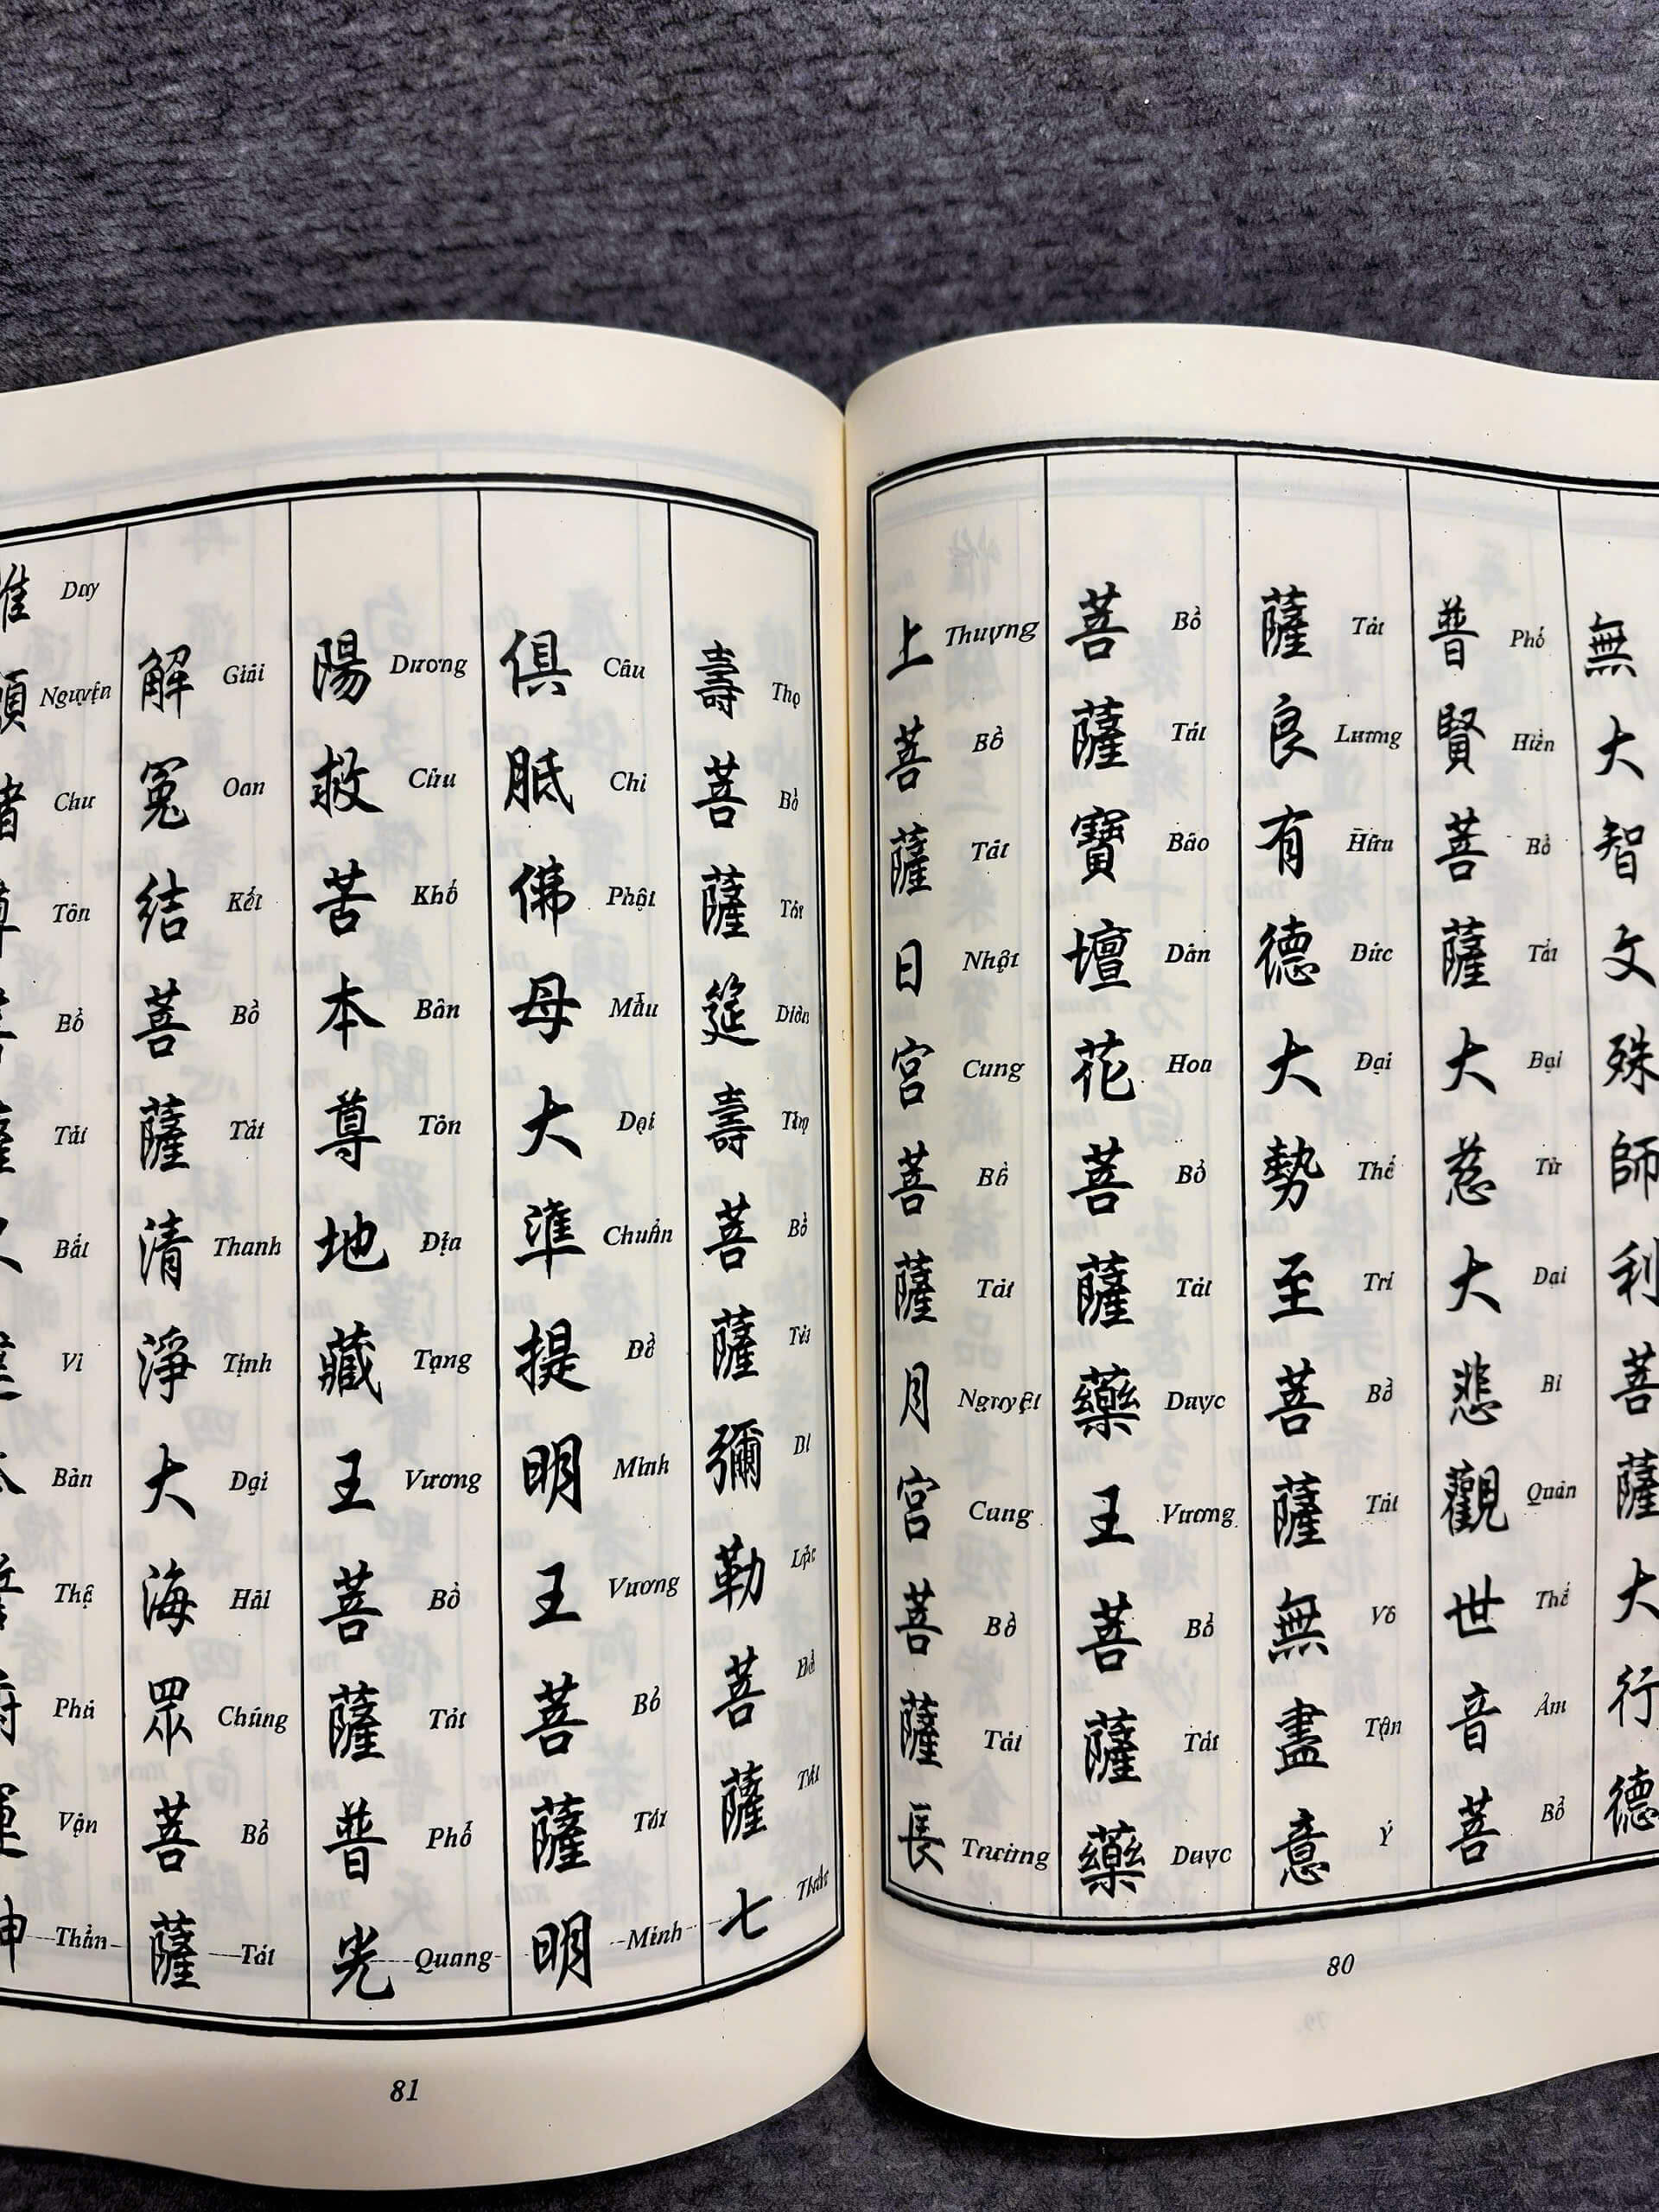 無大智文殊師利菩薩大行德
普賢菩薩大慈大悲觀世音菩
Phổ Hiền Bồ Tát Đại Từ Đại Bi Quán Thế Âm Bồ
薩良有德大勢至菩薩無盡意
Tát Lương Hữu Đức Đại Thế Trí Bồ Tát Vô Tận Ý
菩薩寶壇花菩薩藥王菩薩藥
Bồ Tát Bảo Đàn Hoa Bồ Tát Dược Vương Bồ Tát Dược
上菩薩日宮菩薩月宮菩薩長
Thượng Bồ Tát Nhật Cung Bồ Tát Nguyệt Cung Bồ Tát Trường
80
壽菩薩筵壽菩薩彌勒菩薩七
Thọ Bồ Tát Diên Thọ Bồ Tát Di Lặc Bồ Tát Thất
俱胝佛母大準提明王菩薩明
Câu Chi Phật Mẫu Đại Chuẩn Đề Minh Vương Bồ Tát Minh
陽救苦本尊地藏王菩薩普光
Dương Cứu Khổ Bản Tôn Địa Tạng Vương Bồ Tát Phổ Quang
解冤結菩薩清淨大海眾菩薩
Giải Oan Kết Bồ Tát Thanh Tịnh Đại Hải Chúng Bồ Tát
Duy Nguyện Chư Tôn Bồ Tát Bất Vi Bản Thệ Phủ Vận Thần
81